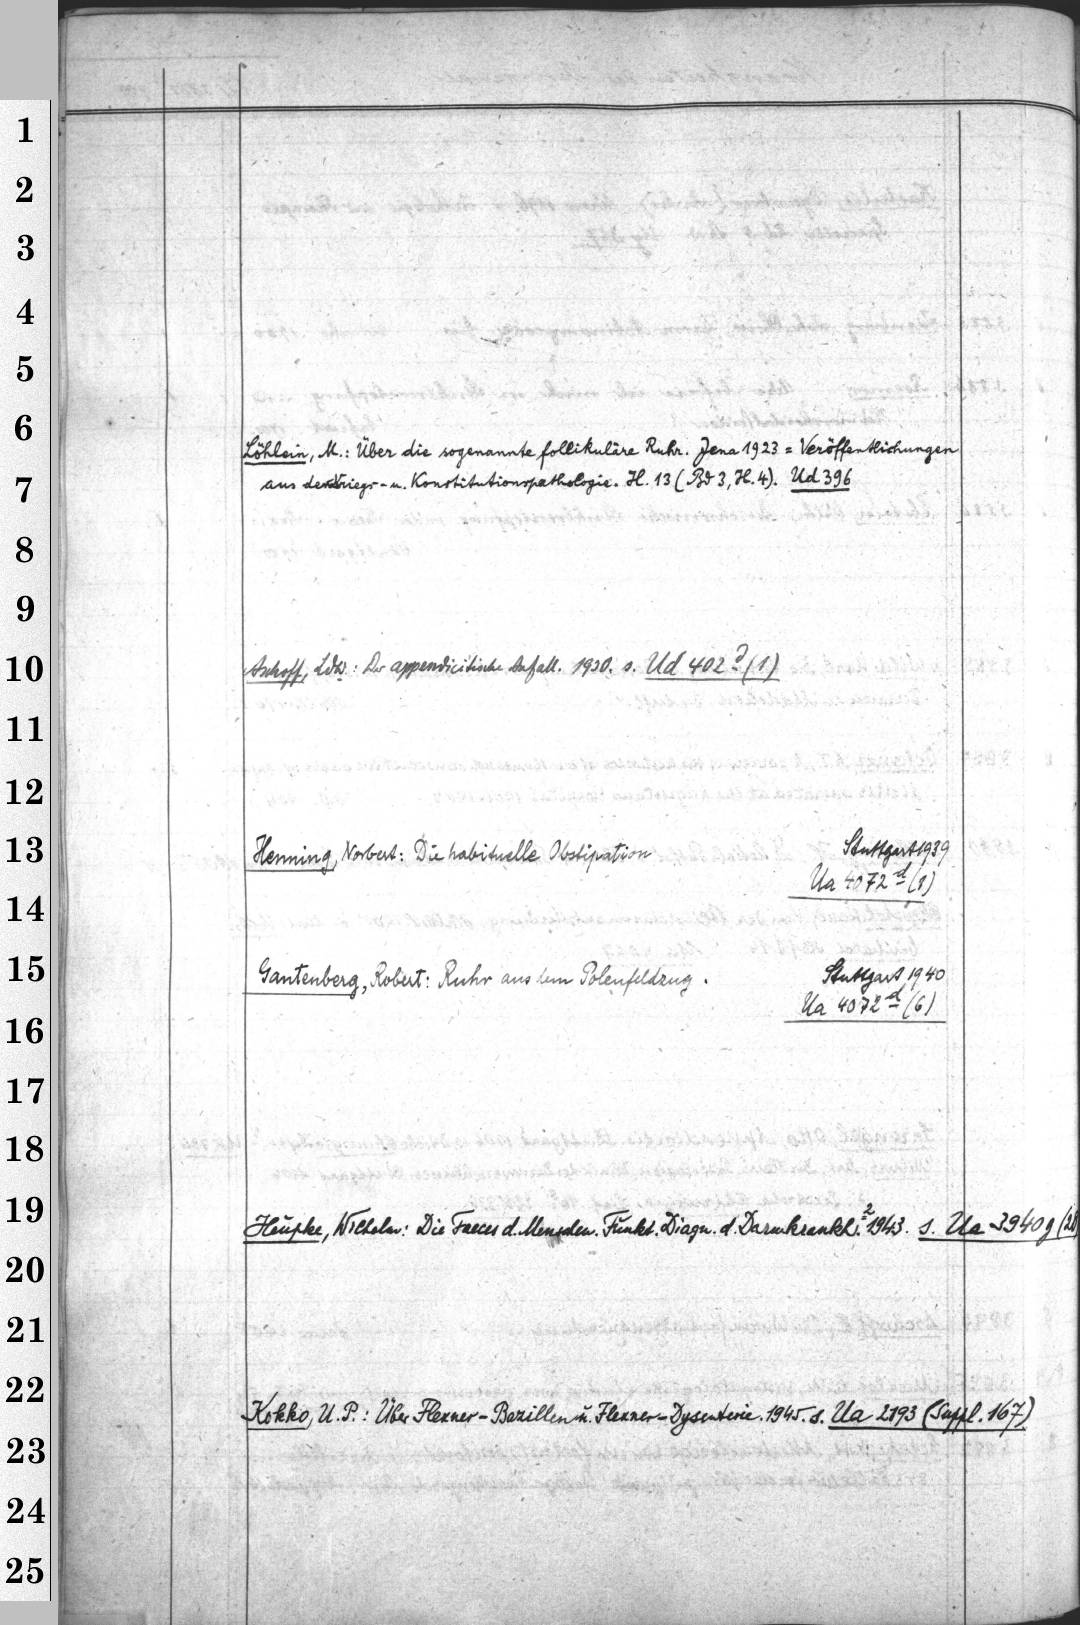 1
2
3
4
5
6
Löhlein, M.: Über die sogenannte follikuläre Ruhr. Jena 1923 = Veröffentlichungen
7
aus der Kriegs- u. Konstitutionspathologie. H. 13 (Bd 3, H. 4). Ud 396
8
9
10
Aschoff, Ldw: Der appendicitische Anfall. 1930. s. Ud 402 (1)
11
12
13
Henning, Norbert: Die habituelle Obstipation Stuttgart 1939
Ua 4072 d (1)
14
15
Gantenberg, Robert: Ruhr aus dem Polenfeldzug. Stuttgart 1940
Ua 4072 d (6)
16
17
18
19
Heupke, Wilhelm: Die Faeces d. Menschen. Funkt. Diagn. d. Darmkrankh. 2 1943. s. Ua 3940 g
20
21
22
Kokko, U. P.: Über Flexner-Bazillen u. Flexner-Dysenterie. 1945. s. Ua 2193 (Suppl. 167)
23
24
25